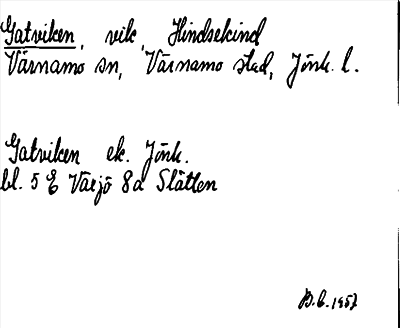 Gatviken, vik, Hindsekind
Värnamo sn, Värnamo stad, Jönk. l.
Gatviken ek. Jönk.
bl. 5 E Växjö 8d Slätten
B.C. 1957